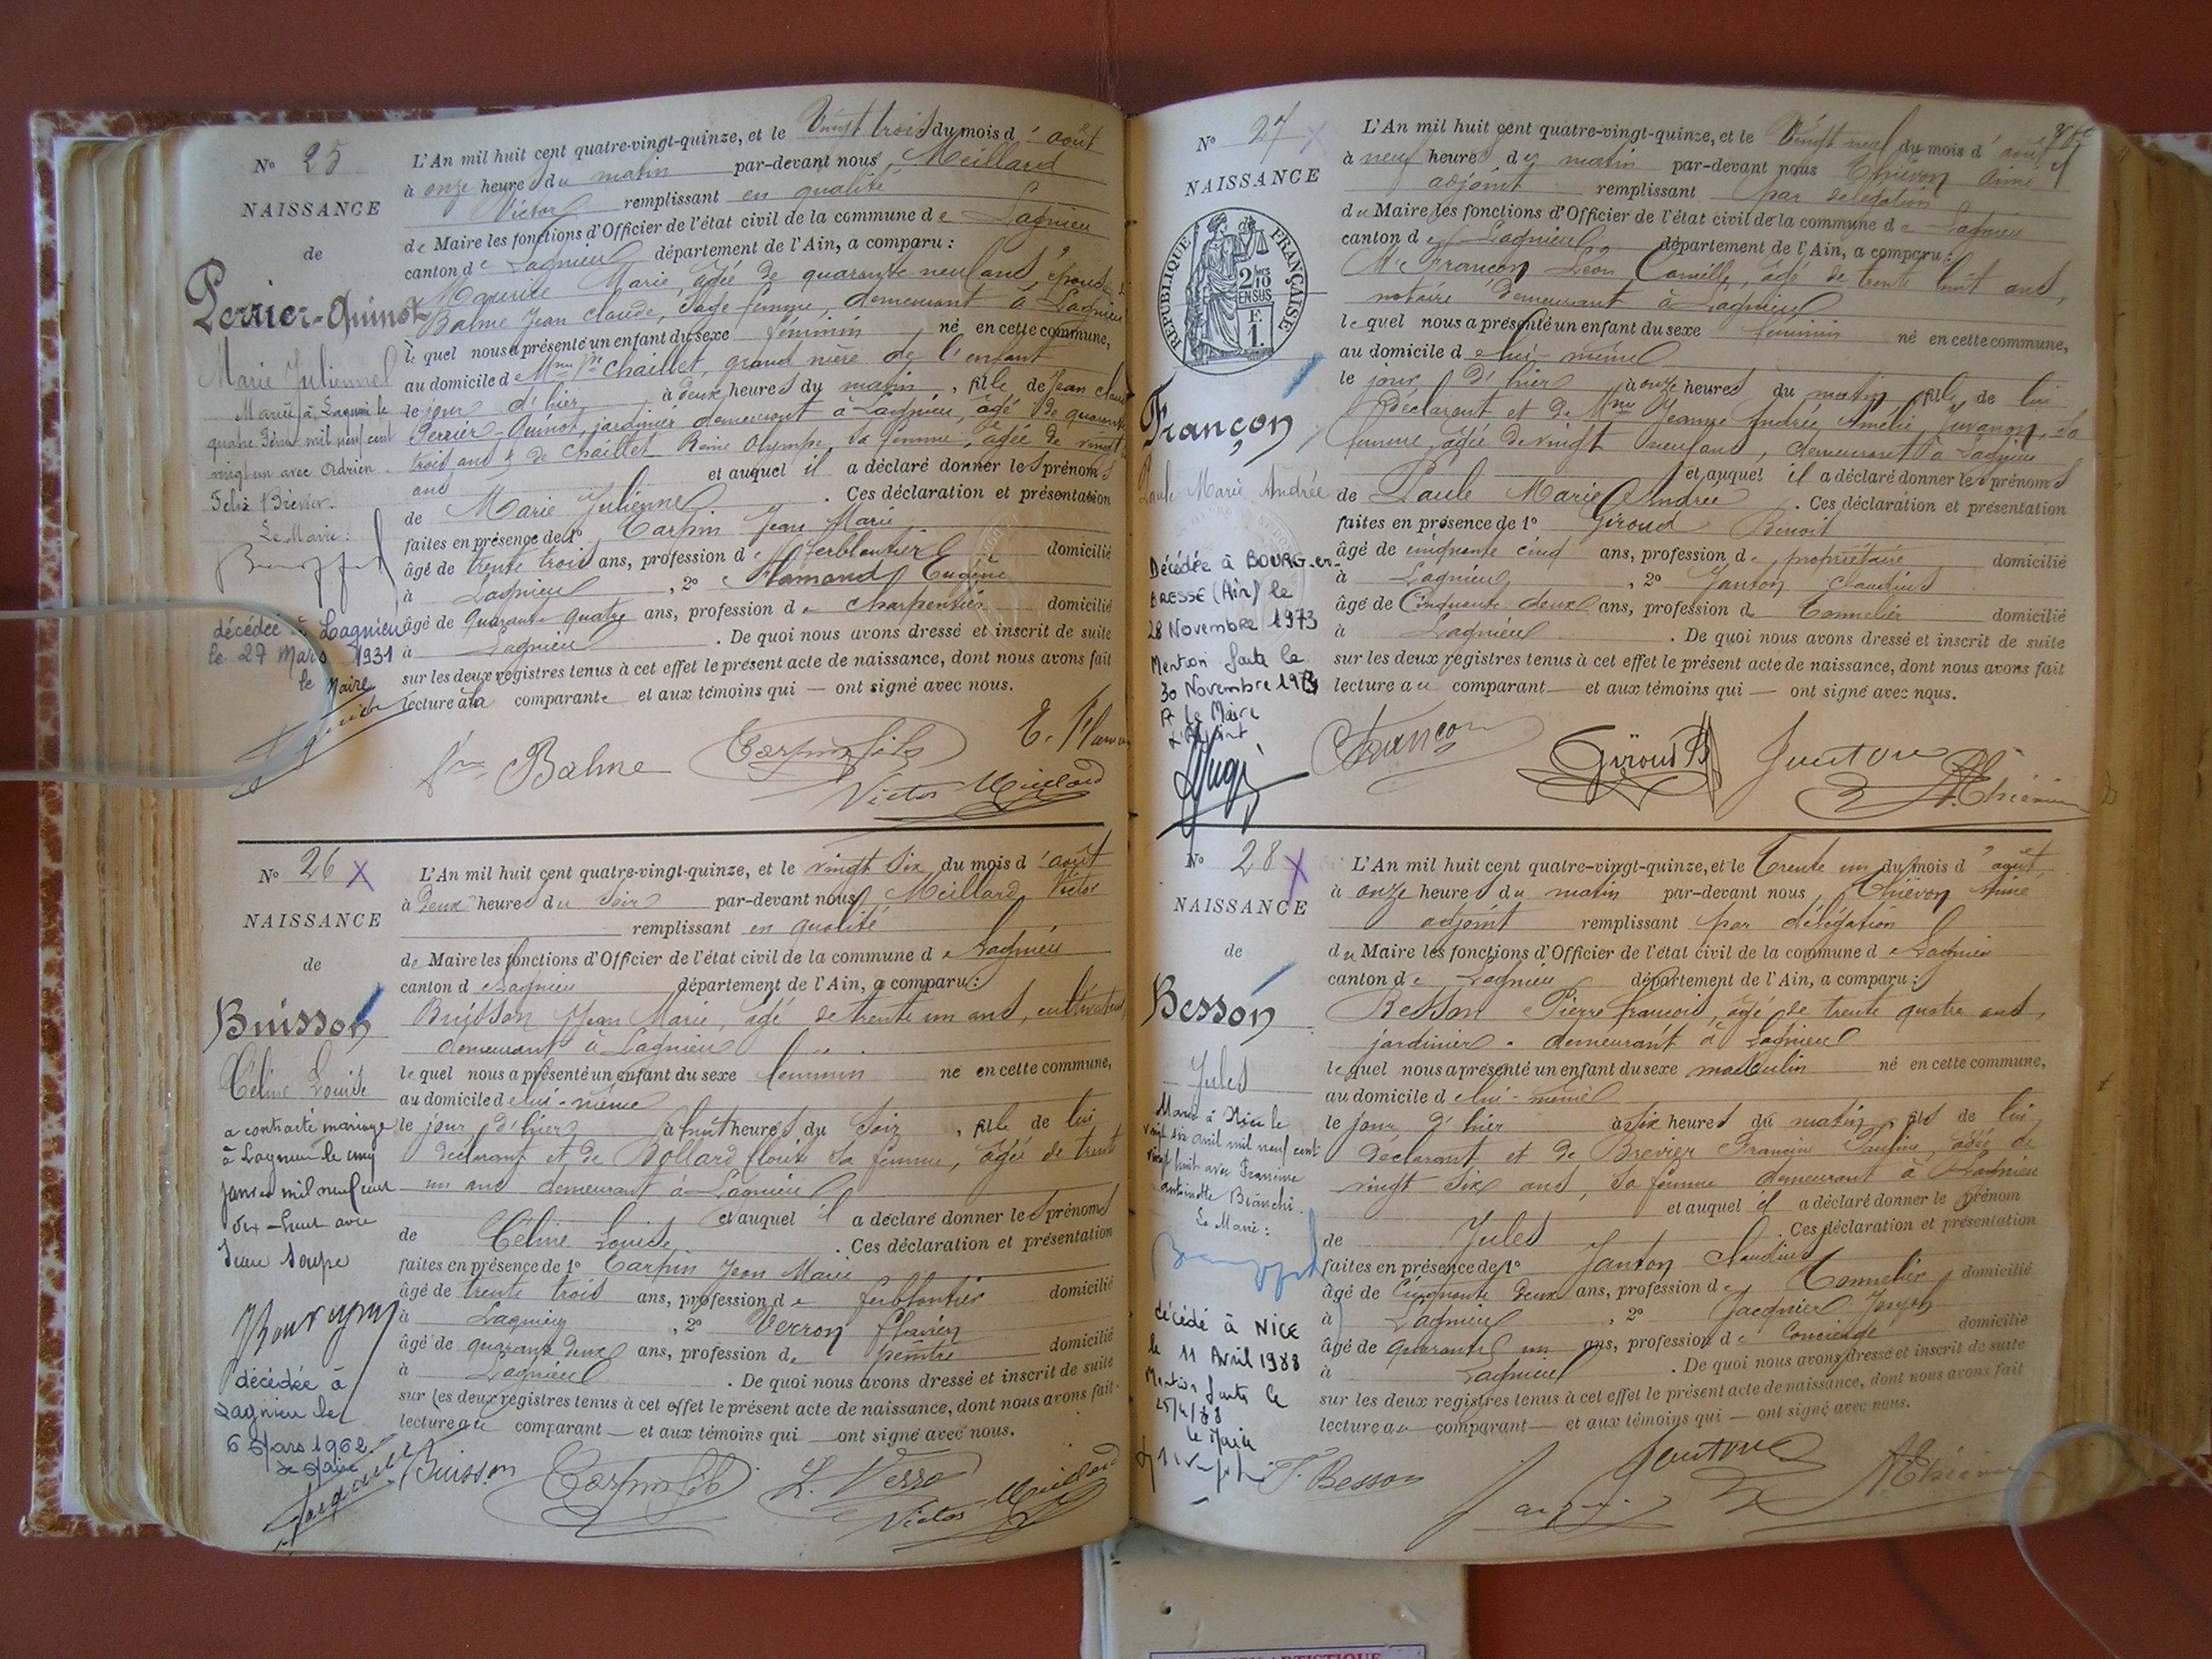 N° 25
NAISSANCE
de
Perrier-Quinot
Marie Julienne
Mariée à Lagnieu le
quatre mil neuf cent
vingt un avec Adrien
Félix Brévier.
Le Maire :
décédée à Lagnieu
le 27 Mars 1931
le Maire
L'An mil huit cent quatre-vingt-quinze, et le Vingt trois du mois d'août
à onze heures du matin par-devant nous, Meillard
Victor remplissant en qualité
de Maire les fonctions d'Officier de l'état civil de la commune de Lagnieu
canton de Lagnieu département de l'Ain, a comparu :
Marie, âgée de quarante neuf ans, épouse
Balme Jean Claude, sage femme, demeurant à Lagnieu
lequel nous a présenté un enfant du sexe féminin, né en cette commune,
au domicile de Mme Vve Chaillet, grand mère de l'enfant
le jour d'hier à deux heures du matin, fille de Jean Claude
Perrier-Quinot, jardinier demeurant à Lagnieu, âgé de quarante
trois ans & de Chaillet Reine Olympe sa femme, âgée de vingt
ans et auquel il a déclaré donner les prénoms
de Marie Julienne. Ces déclaration et présentation
faites en présence de 1° Carpin Jean Marie
âgé de trente trois ans, profession de ferblantier domicilié
à Lagnieu, 2° Flamand Eugène
âgé de quarante quatre ans, profession de charpentier domicilié
à Lagnieu. De quoi nous avons dressé et inscrit de suite
sur les deux registres tenus à cet effet le présent acte de naissance, dont nous avons fait
lecture à la comparante et aux témoins qui — ont signé avec nous.
Fme Balme Carpin fils E. Flaman
Victor Meillard
N° 26 X
NAISSANCE
de
Buisson
Céline Louise
a contracté mariage
à Lagnieu le cinq
janvier mil neuf cent
dix-huit avec
Soupe
décédée à
Lagnieu le
6 Mars 1962
Le Maire
L'An mil huit cent quatre-vingt-quinze, et le vingt six du mois d'août
à deux heures du soir par-devant nous, Meillard Victor
remplissant en qualité
de Maire les fonctions d'Officier de l'état civil de la commune de Lagnieu
canton de Lagnieu département de l'Ain, a comparu :
Buisson Jean Marie, âgé de trente un ans, cultivateur,
demeurant à Lagnieu
lequel nous a présenté un enfant du sexe féminin né en cette commune,
au domicile de lui-même
le jour d'hier à huit heures du soir, fille de lui
déclarant et de Bollard Louise sa femme, âgée de trente
un ans demeurant à Lagnieu
et auquel il a déclaré donner les prénoms
de Céline Louise. Ces déclaration et présentation
faites en présence de 1° Carpin Jean Marie
âgé de trente trois ans, profession de ferblantier domicilié
à Lagnieu, 2° Verron Flavien
âgé de quarante deux ans, profession de peintre domicilié
à Lagnieu. De quoi nous avons dressé et inscrit de suite
sur les deux registres tenus à cet effet le présent acte de naissance, dont nous avons fait
lecture au comparant — et aux témoins qui — ont signé avec nous.
Buisson Carpin fils Verro
Victor Meillard
N° 27 X
NAISSANCE
RÉPUBLIQUE FRANÇAISE
2/10 EN SUS
F. 1.
Françon
Paule Marie Andrée
Décédée à BOURG-en-
BRESSE (Ain) le
28 Novembre 1973
Mention faite le
30 Novembre 1973
Pr le Maire
L'Adjoint
L'An mil huit cent quatre-vingt-quinze, et le Vingt neuf du mois d'août
à neuf heures du matin par-devant nous Thiévon Aimé
adjoint remplissant par délégation
du Maire les fonctions d'Officier de l'état civil de la commune de Lagnieu
canton de Lagnieu département de l'Ain, a comparu :
Mr Françon Léon Camille, âgé de trente huit ans,
notaire demeurant à Lagnieu
lequel nous a présenté un enfant du sexe féminin né en cette commune,
au domicile de lui-même
le jour d'hier à onze heures du matin fille de lui
déclarant et de Mme Jeanne Andrée Amélie Juvanon, sa
femme, âgée de vingt neuf ans, demeurant à Lagnieu
et auquel il a déclaré donner les prénoms
de Paule Marie Andrée. Ces déclaration et présentation
faites en présence de 1° Giroud Benoit
âgé de cinquante cinq ans, profession de propriétaire domicilié
à Lagnieu, 2° Janton Claudius
âgé de Cinquante deux ans, profession de tonnelier domicilié
à Lagnieu. De quoi nous avons dressé et inscrit de suite
sur les deux registres tenus à cet effet le présent acte de naissance, dont nous avons fait
lecture au comparant — et aux témoins qui — ont signé avec nous.
Françon Giroud B Janton
A. Thiévon
N° 28 X
NAISSANCE
de
Besson
Jules
Marié à Nice le
vingt six avril mil neuf cent
vingt huit avec
Antoinette Bianchi.
Le Maire :
décédé à NICE
le 11 Avril 1988
Mention faite le
25/4/88
le Maire
L'An mil huit cent quatre-vingt-quinze, et le Trente un du mois d'août,
à onze heures du matin par-devant nous, Thiévon Aimé
adjoint remplissant par délégation
du Maire les fonctions d'Officier de l'état civil de la commune de Lagnieu
canton de Lagnieu département de l'Ain, a comparu :
Besson Pierre François, âgé de trente quatre ans,
jardinier demeurant à Lagnieu
lequel nous a présenté un enfant du sexe masculin né en cette commune,
au domicile de lui-même
le jour d'hier à six heures du matin, fils de lui
déclarant et de Brevier Francine Pauline, âgée de
vingt six ans, sa femme demeurant à Lagnieu
et auquel il a déclaré donner le prénom
de Jules. Ces déclaration et présentation
faites en présence de 1° Janton Claudius
âgé de Cinquante deux ans, profession de Tonnelier domicilié
à Lagnieu, 2° Jacquier Joseph
âgé de quarante un ans, profession de Concierge domicilié
à Lagnieu. De quoi nous avons dressé et inscrit de suite
sur les deux registres tenus à cet effet le présent acte de naissance, dont nous avons fait
lecture au comparant — et aux témoins qui — ont signé avec nous.
P. Besson Janton A. Thiévon